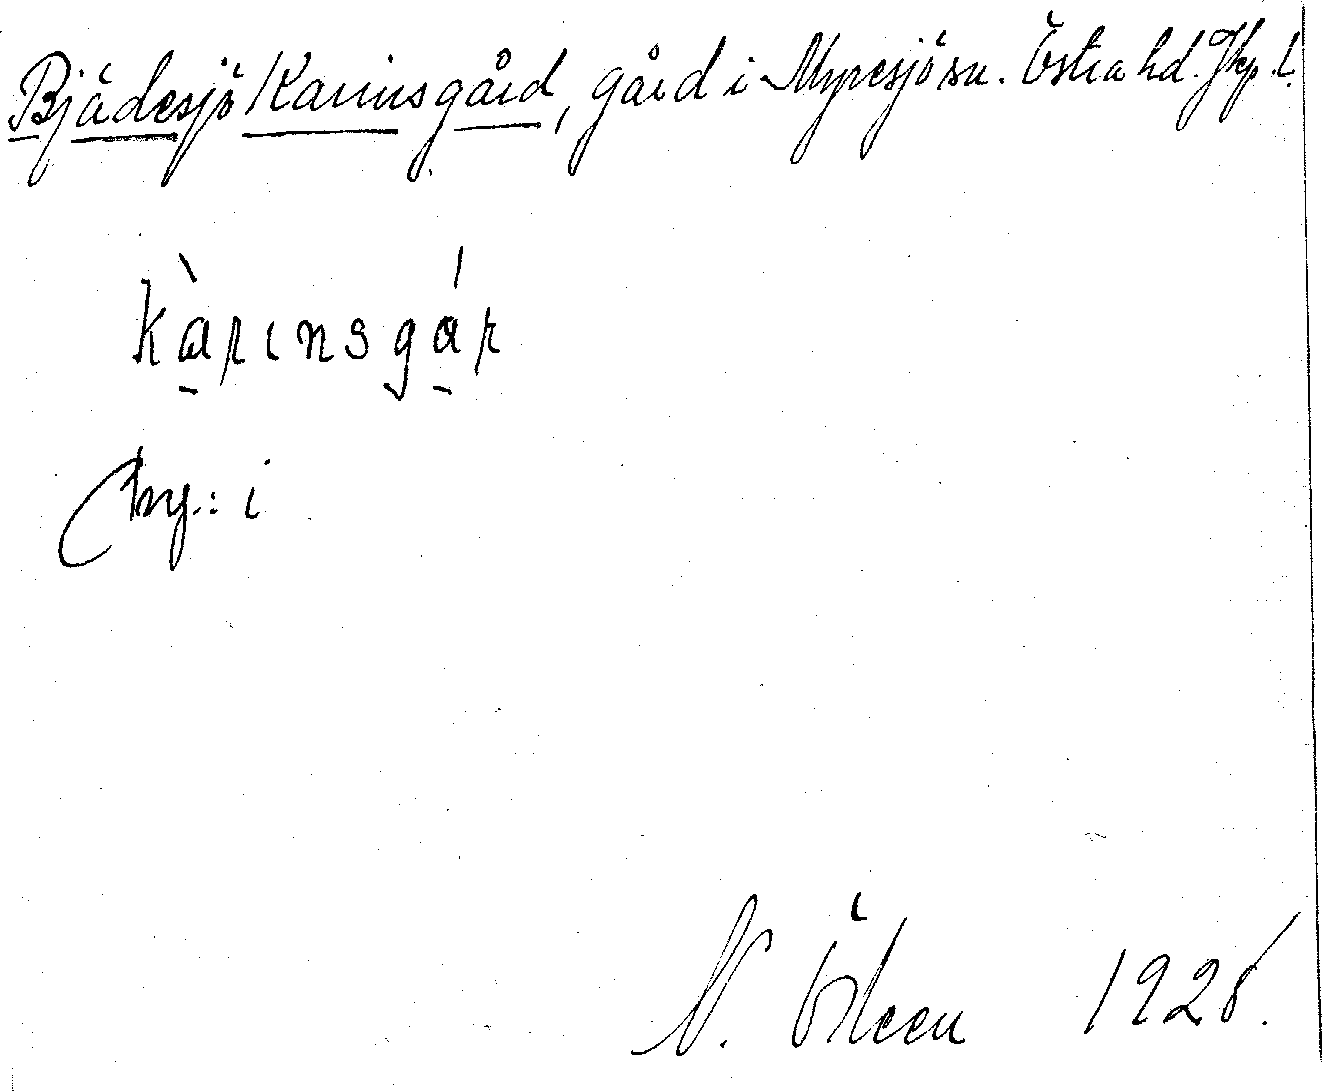 Bjädesjö Karinsgård, gård i Myresjö sn. Östra hd. Jkp. l.
kàrinsgár
Ang.: i
N. Ödeen 1928.